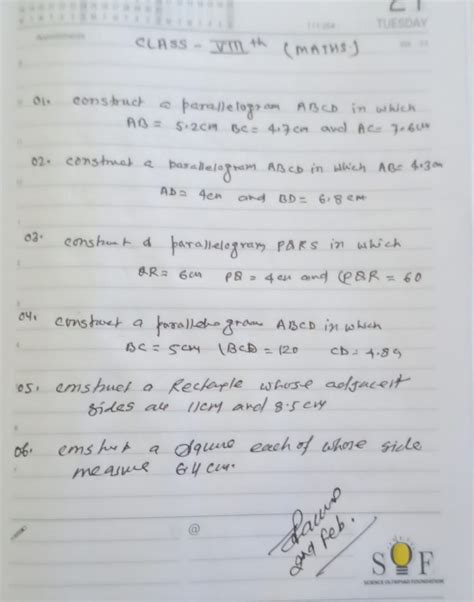 21
TUESDAY
Appointments
CLASS - VIIIth (MATHS)
01. construct a parallelogram ABCD in which
AB = 5.2cm BC = 4.7cm and AC = 7.6cm
02. construct a parallelogram ABCD in which AB = 4.3cm
AD = 4cm and BD = 6.8cm
03. construct a parallelogram PQRS in which
QR = 6cm PQ = 4cm and ∠PQR = 60
04. construct a parallelogram ABCD in which
BC = 5cm ∠BCD = 120 CD = 4.8
05. construct a Rectangle whose adjacent
sides are 11cm and 8.5cm
06. construct a square each of whose side
measure 6.4cm.
2nd Feb.
@
SOF
SCIENCE OLYMPIAD FOUNDATION